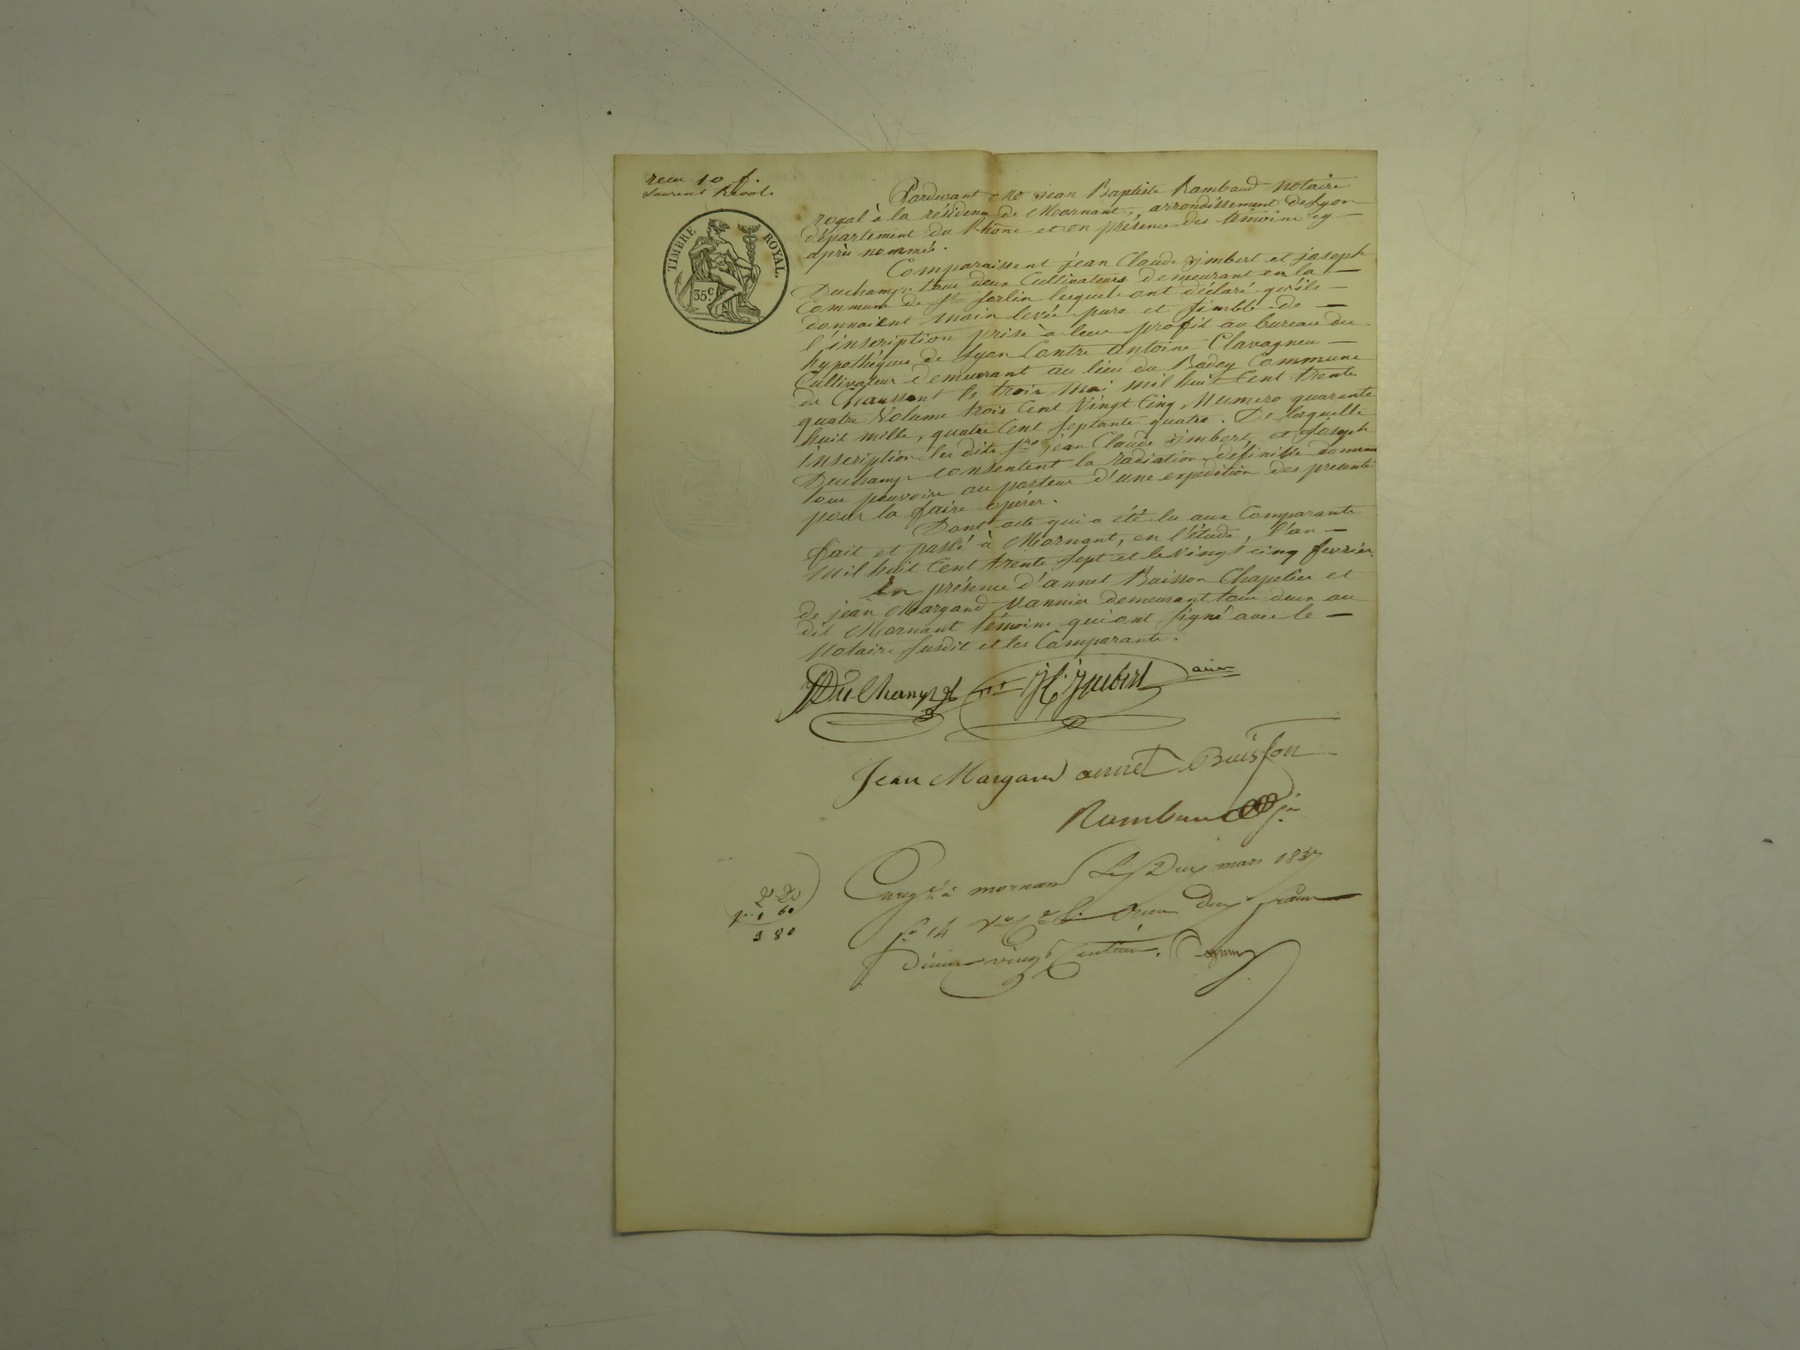 recu 10 f.
Laurent
TIMBRE ROYAL
35c
Pardevant Me Jean Baptiste Rambaud notaire
royal à la résidence de Mornant, arrondissement de Lyon
département du Rhône et en présence des témoins cy —
après nommés.
Comparaissent jean Claude jimbert et joseph
Duchamp tous deux Cultivateurs demeurant en la —
Commune de St Sorlin lesquels ont déclaré qu'ils —
donnaient main levée pure et simple de —
l'inscription prise à leur profit au bureau des
hypothèques de Lyon Contre antoine Clavagneu —
Cultivateur demeurant au lieu du Badey Commune
de Chaussant le trois mai mil huit Cent trente
quatre Volume trois Cent Vingt Cinq Numero quarante
huit mille, quatre Cent septante quatre. De laquelle
inscription les dits Srs jean Claude jimbert, et joseph
Duchamp consentent la radiation définitive donnant
tous pouvoirs au porteur d'une expedition des presentes
pour la faire opérer.
Dont acte qui a été lu aux Comparants
fait et passé à Mornant, en l'étude, l'an —
mil huit Cent trente sept et le vingt cinq fevrier.
En présence d'annet Buisson Chapelier et
de jean Margand Vannier demeurant tous deux au
dit Mornant témoins qui ont signé avec le —
Notaire susdit et les Comparants.
DuChamp
Jean Margand annet Buisson
Rambaud
à mornant Le Deux mars 1837
fo 14 Vo Deux francs
Décime vingt Centimes.
2 20
1 60
3 80